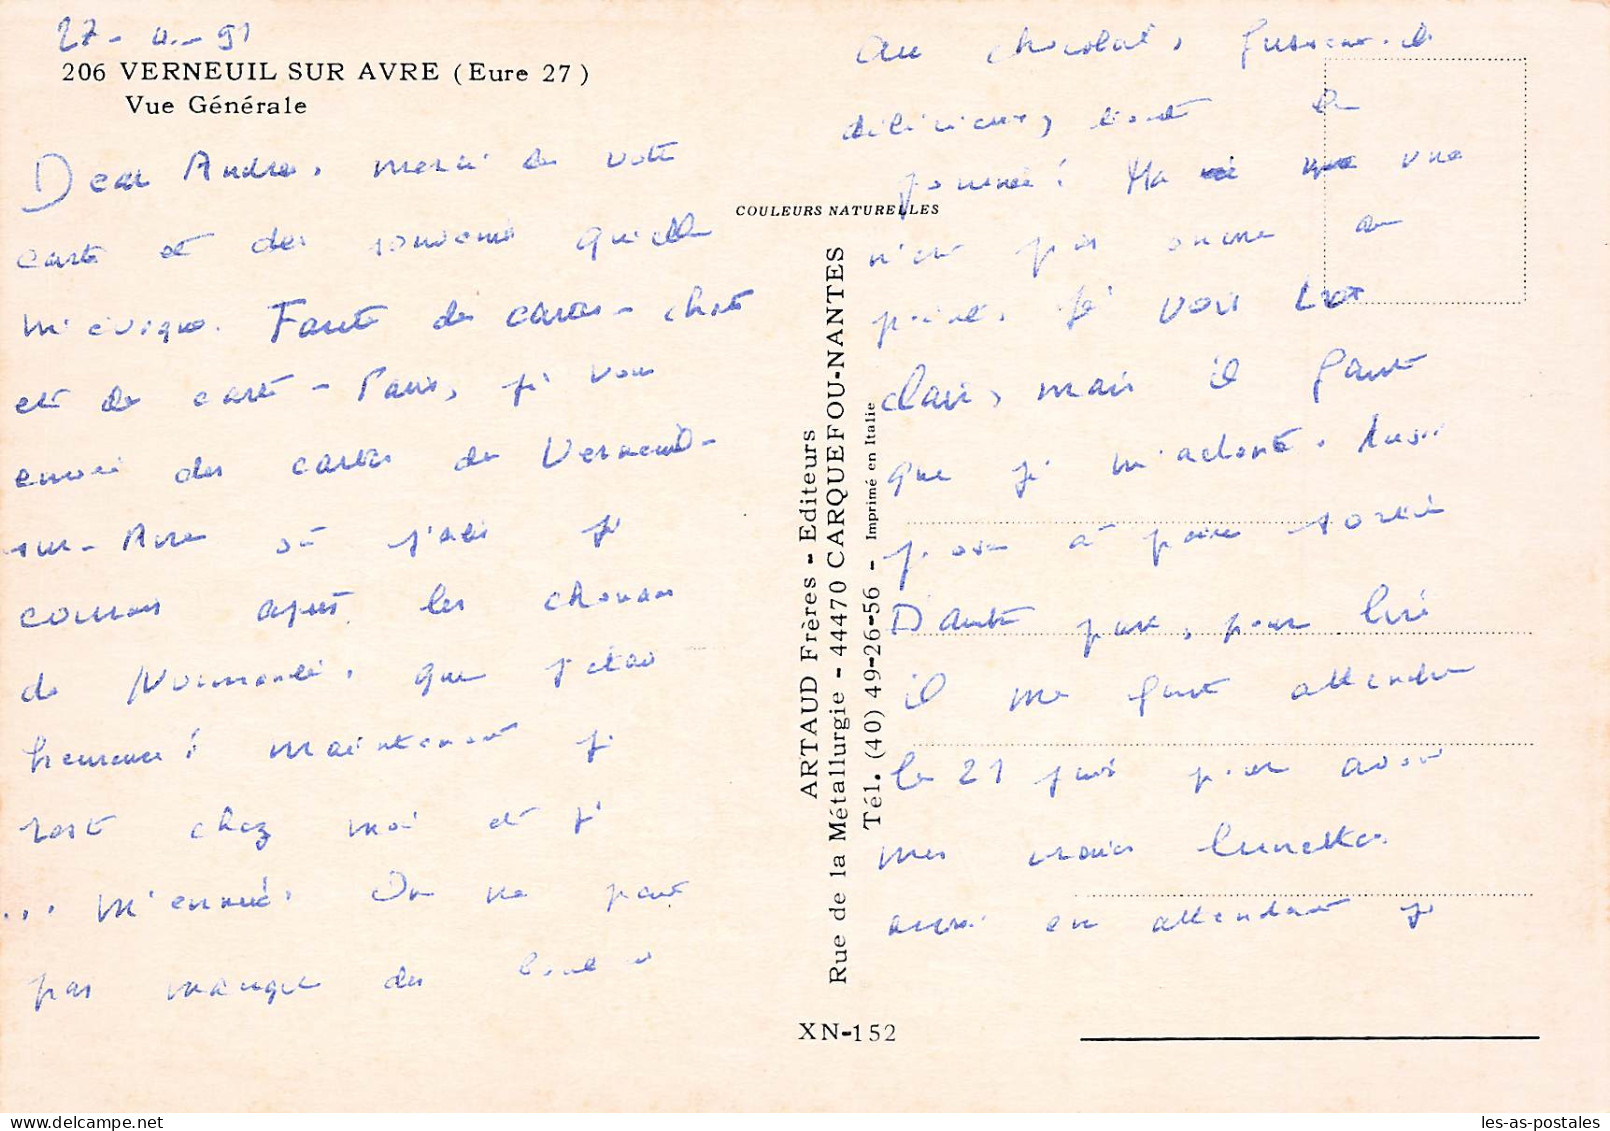 27 - 4 - 91
206 VERNEUIL SUR AVRE (Eure 27)
Vue Générale
Dear Andrée, merci de votre
carte et des souvenirs qu'elle
m'évoque. Faute de cartes - chat
et de carte - Paris, je vous
envoie des cartes de Verneuil-
sur-Avre où j'ai
courais après les chouans
de Normandie, que j'étais
heureuse! maintenant je
reste chez moi et je
... m'ennuie. On ne peut
pas manger des
COULEURS NATURELLES
ARTAUD Frères - Editeurs
Rue de la Métallurgie - 44470 CARQUEFOU-NANTES
Tél. (40) 49-26-56 - Imprimé en Italie
XN-152
au chocolat,
délicieux, toute la
journée! Ma vue
n'est pas encore au
point. Je vois
clair, mais il faut
que je m'adapte.
à peine sortie
D'autre part, pour lire
il me faut attendre
le 21 juin pour avoir
mes vraies lunettes.
aussi en attendant je
les-as-postales